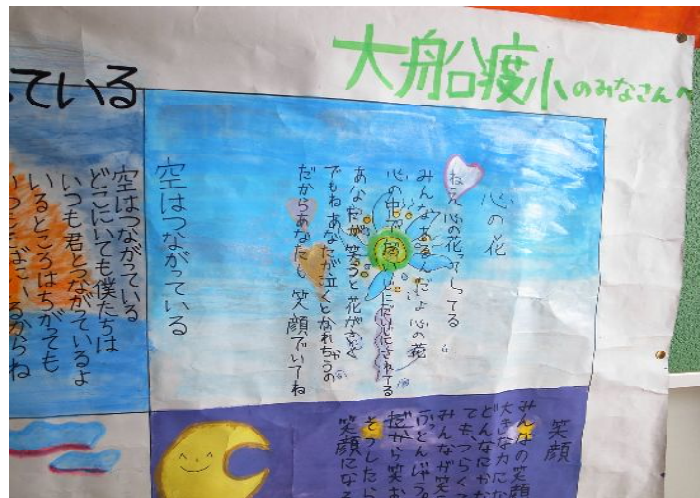 大船渡小のみなさんへ
ている
心の花
ねえ心の花ってしってる
みんなあるんだよ心の花
心の中で
あなたが笑うと花がさく
でもねあなたが泣くとかれちゃうの
だからあなたも 笑顔でいてね
空はつながっている
空はつながっている
どこにいても僕たちは
いつも君とつながっているよ
いるところはちがっても
いるからね
笑顔
みんなの笑顔
大きな力にな
どんなにか
ても、つらく
みんなが笑
ふとんじゃう。
だから笑お
そうしたら
笑顔になる